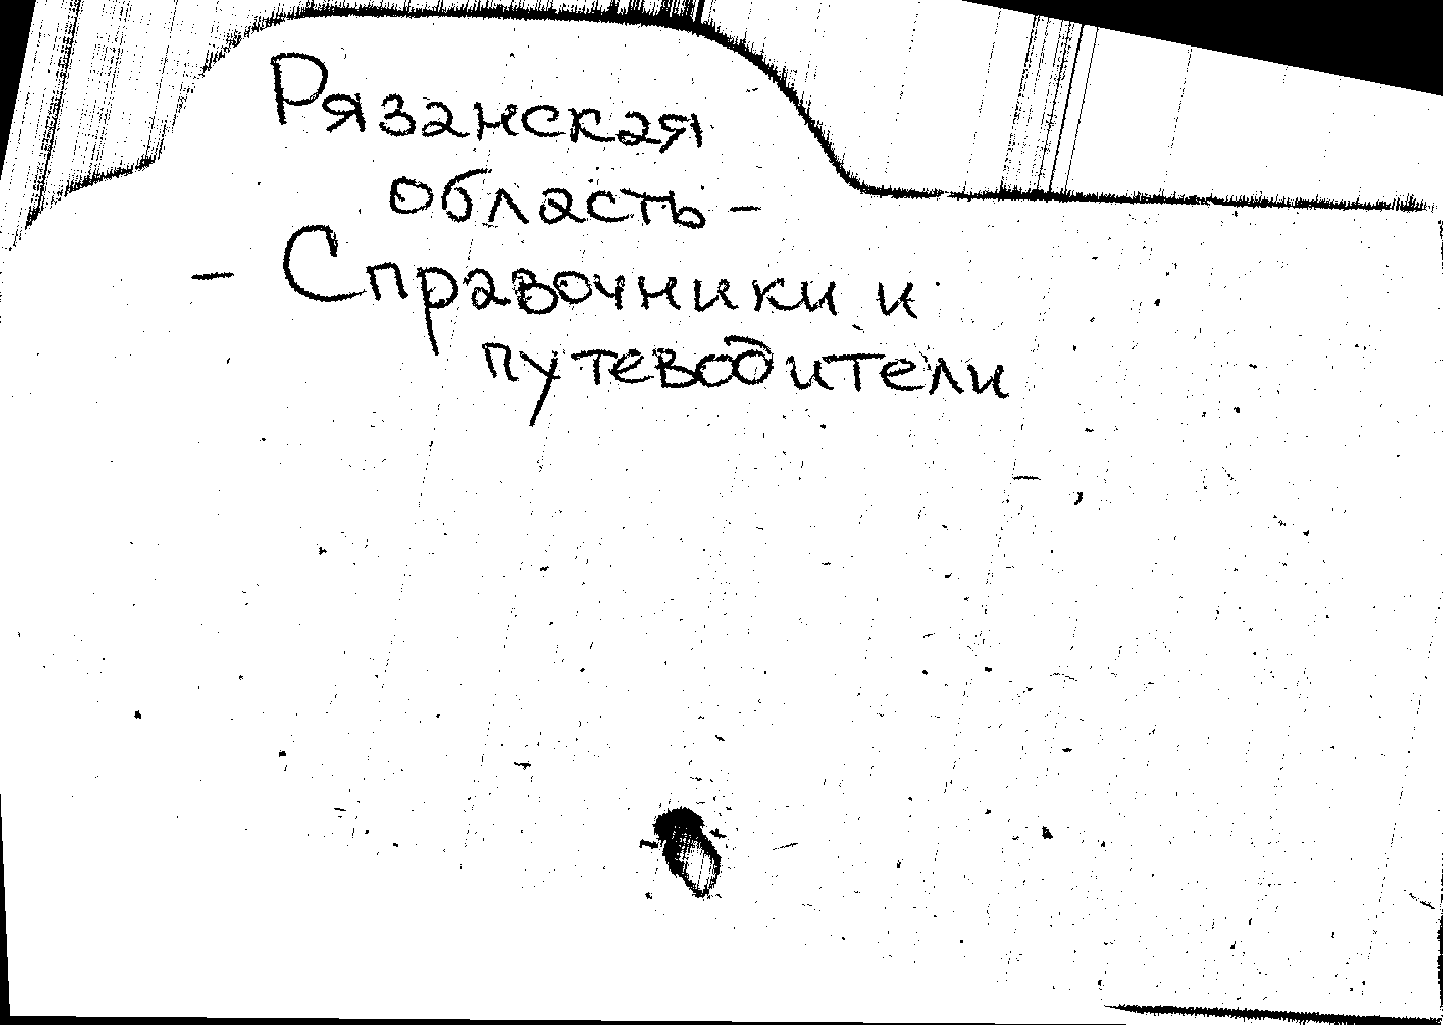 Рязанская
область -
- Справочники и
путеводители